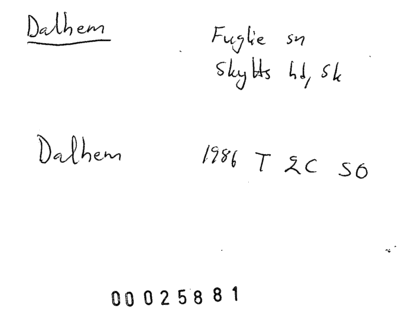 Dalhem Fuglie sn
Skytts hd, Sk
Dalhem 1986 T 2C SO
00025881